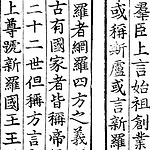 羣臣上言始祖創業
或稱斯盧或言新羅
羅者網羅四方之義
古有國家者皆稱帝
二十二世但稱方言
上尊號新羅國王王